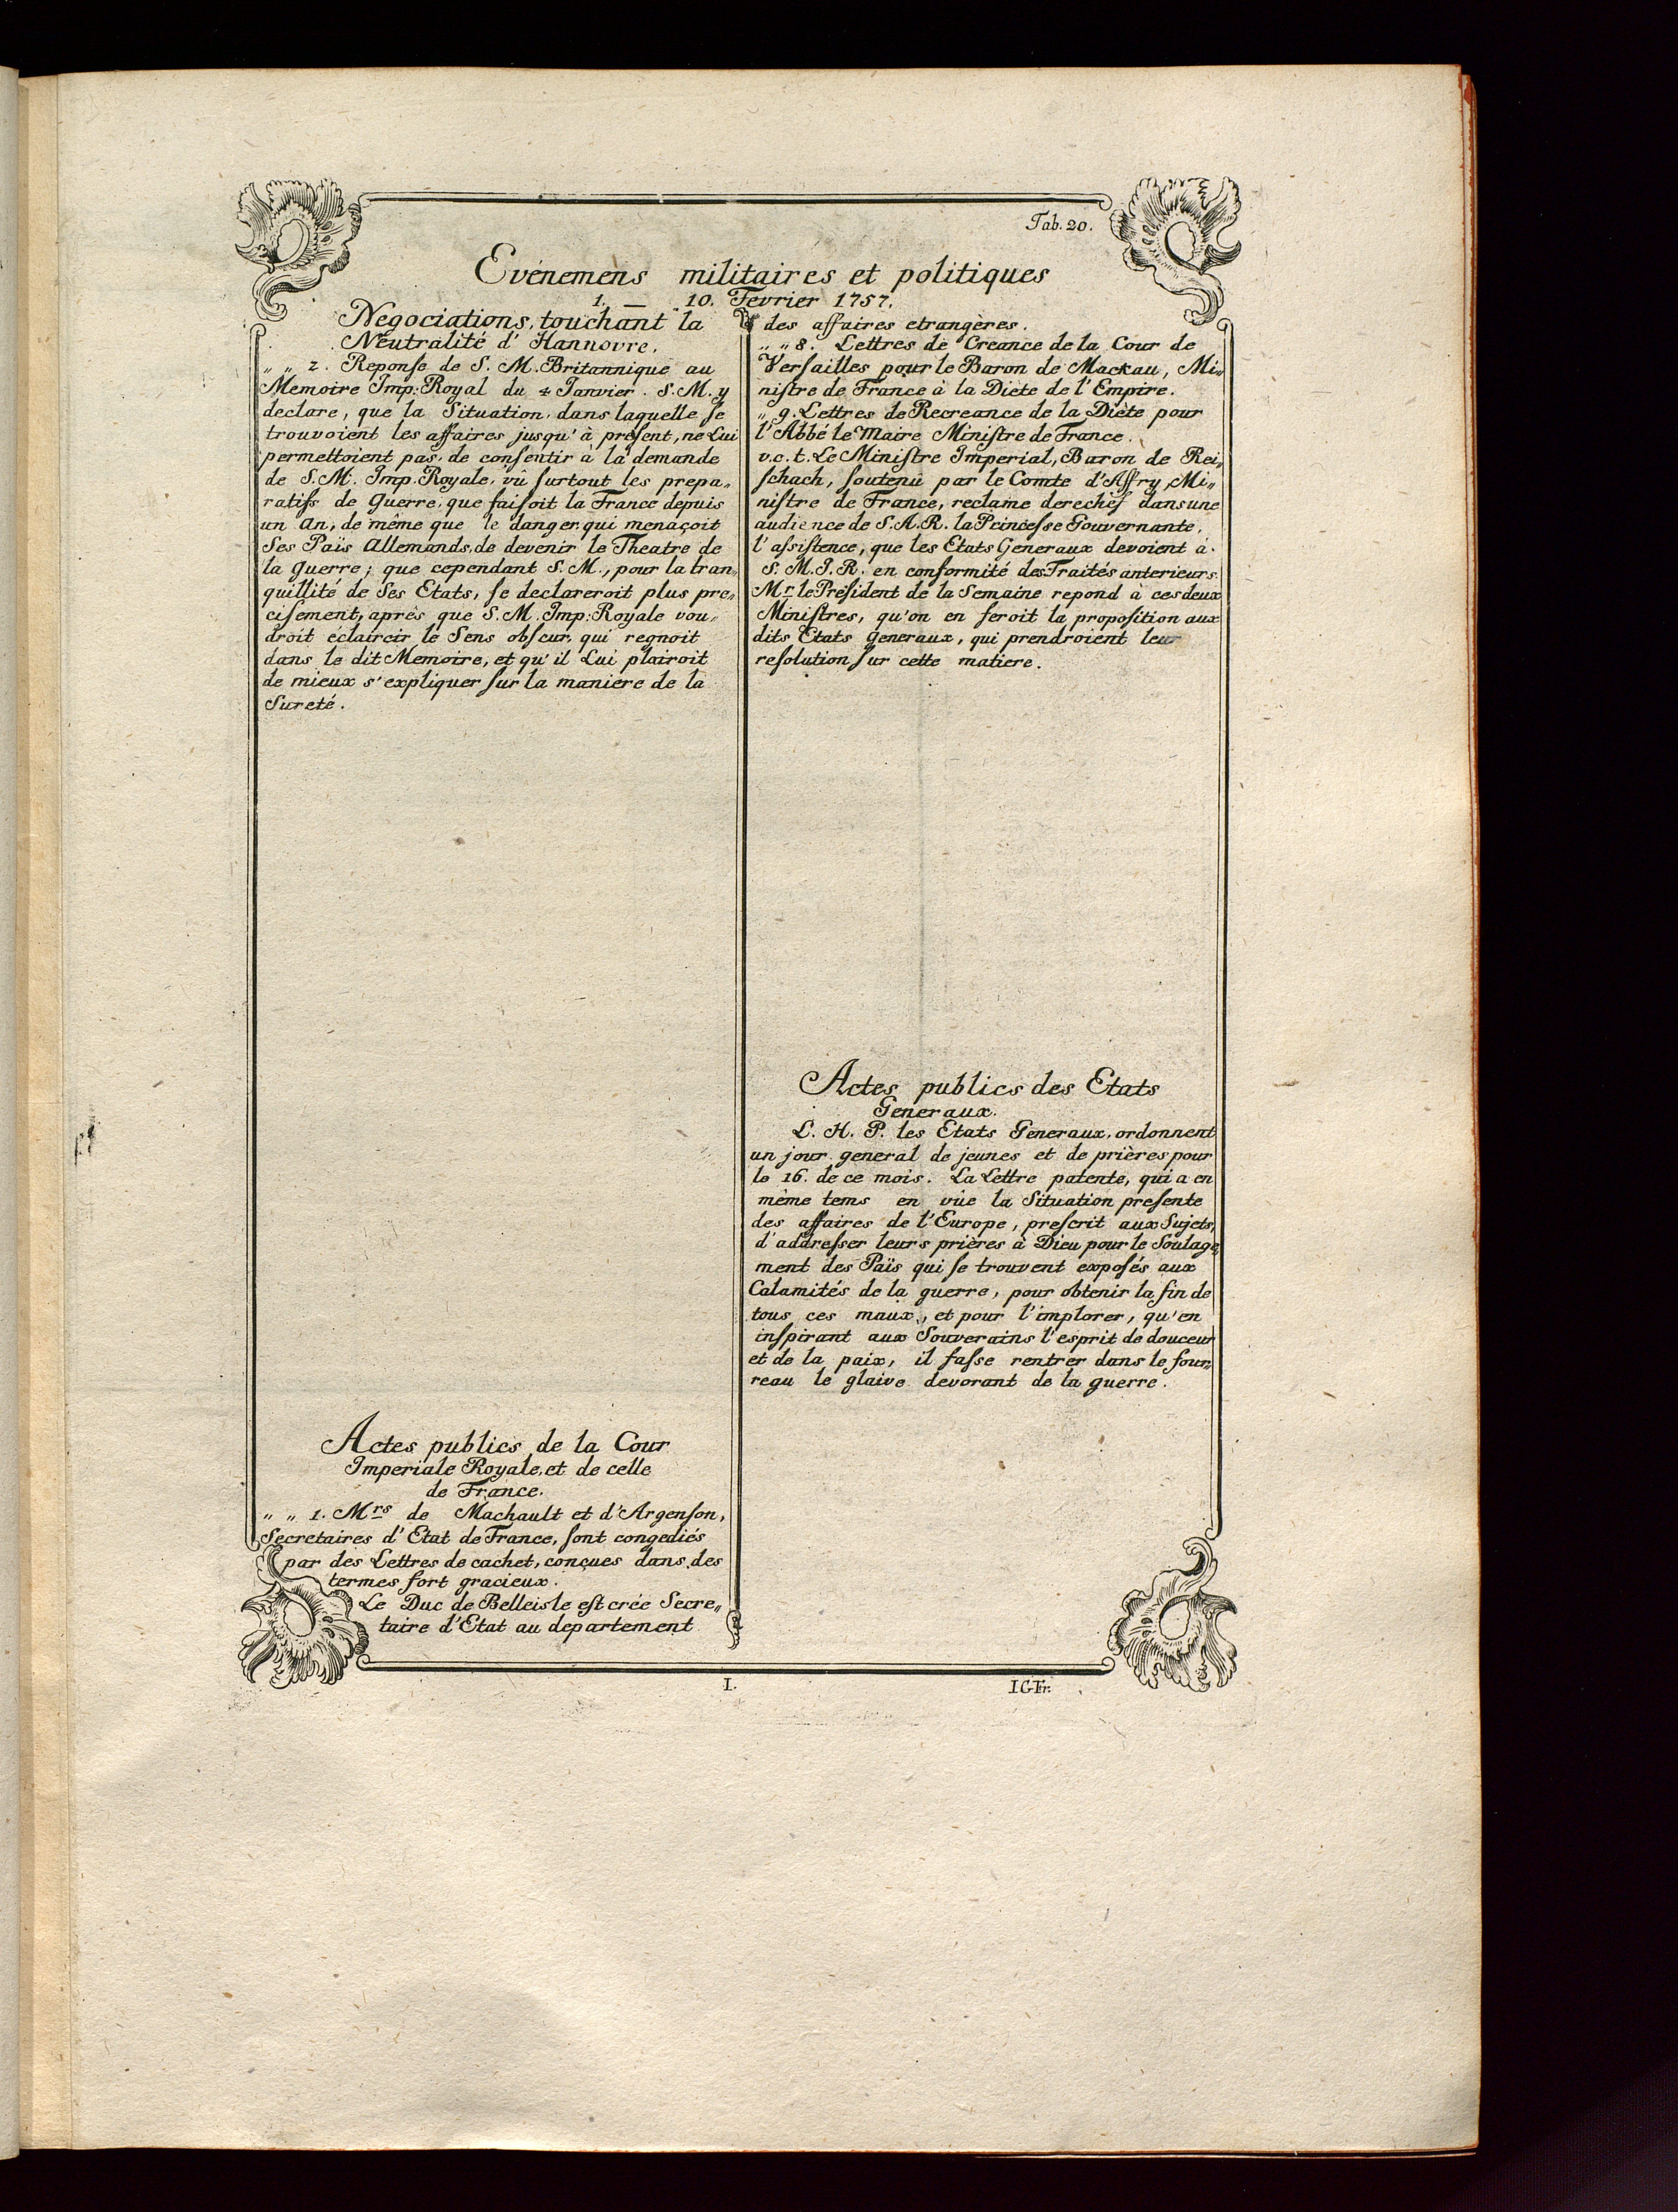 Tab. 20.
Evénemens militaires et politiques
1. — 10. Fevrier 1757.
Negociations, touchant la
Neutralité d' Hannovre.
„ „ 2. Reponse de S. M. Britannique au
Memoire Imp: Royal du 4 Janvier. S. M. y
declare, que la Situation, dans laquelle se
trouvoient les affaires jusqu' à présent, ne Lui
permettoient pas, de consentir à la demande
de S. M. Imp. Royale, vû surtout les prepa„
ratifs de Guerre, que faisoit la France depuis
un An, de même que le danger, qui menaçoit
Ses Païs Allemands, de devenir le Theatre de
la Guerre; que cependant S. M., pour la tran„
quillité de Ses Etats, se declareroit plus pre„
cisement, aprés que S. M. Imp: Royale vou„
droit eclaircir le Sens obscur, qui regnoit
dans le dit Memoire, et qu' il Lui plairoit
de mieux s' expliquer sur la maniere de la
Sureté.
Actes publics de la Cour
Imperiale Royale, et de celle
de France.
„ „ 1. Mrs de Machault et d' Argenson,
Secretaires d' Etat de France, sont congediés
par des Lettres de cachet, conçues dans des
termes fort gracieux.
Le Duc de Belleisle est crée Secre„
taire d'Etat au departement
des affaires etrangères.
„ „ 8. Lettres de Creance de la Cour de
Versailles pour le Baron de Mackau, Mi„
nistre de France à la Diete de l' Empire.
„ 9. Lettres de Recreance de la Diète pour
l' Abbé le Maire Ministre de France.
v. c. t. Le Ministre Imperial, Baron de Rei„
schach, soutenù par le Comte d'Affry, Mi„
nistre de France, reclame derechef dans une
audience de S. A. R. la Princesse Gouvernante,
l' assistence, que les Etats Generaux devoient à
S. M. I. R. en conformité des Traités anterieurs.
Mr. le Président de la Semaine repond à ces deux
Ministres, qu'on en feroit la proposition aux
dits Etats Generaux, qui prendroient leur
resolution sur cette matiere.
Actes publics des Etats
Generaux.
L. H. P. les Etats Generaux, ordonnent
un jour general de jeunes et de prières pour
le 16. de ce mois. La Lettre patente, qui a en
même tems en vûe la Situation presente
des affaires de l' Europe, prescrit aux Sujets,
d' addresser leurs prières à Dieu pour le Soulage„
ment des Païs qui se trouvent exposés aux
Calamités de la guerre, pour obtenir la fin de
tous ces maux, et pour l' implorer, qu' en
inspirant aux Souverains l' esprit de douceur
et de la paix, il fasse rentrer dans le four„
reau le glaive devorant de la guerre.
I.
IGFr.